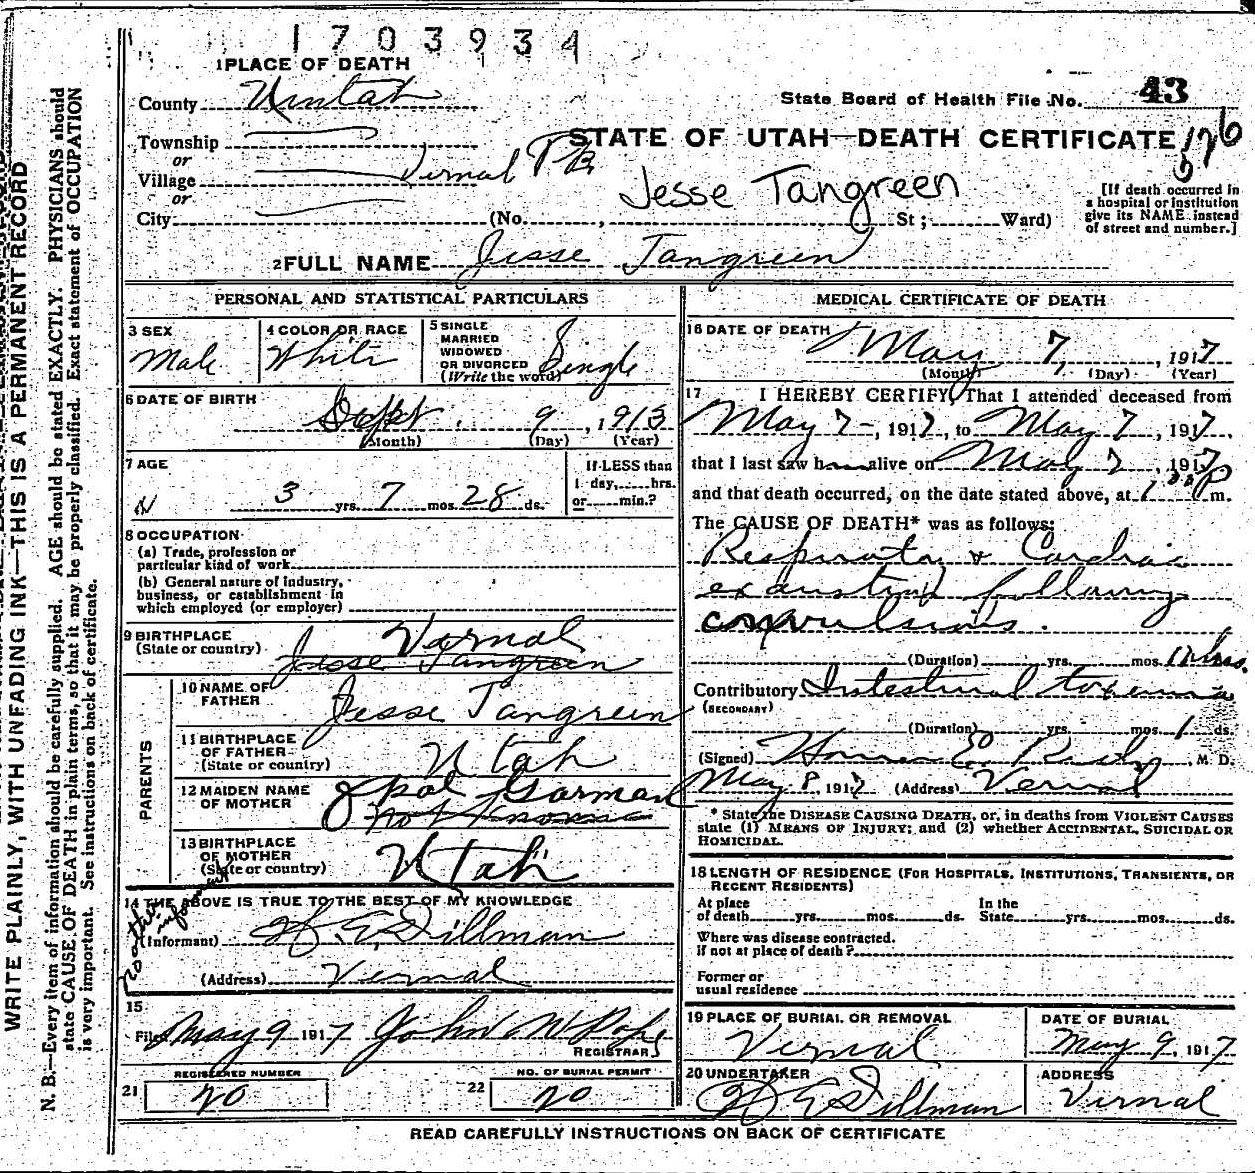 1703934
1 PLACE OF DEATH
County Uintah
State Board of Health File No. 43
Township
STATE OF UTAH—DEATH CERTIFICATE
176
or
Village Vernal
or
Jesse Tangreen
City (No. , St; Ward)
[If death occurred in
a hospital or institution
give its NAME instead
of street and number.]
2 FULL NAME Jesse Tangreen
PERSONAL AND STATISTICAL PARTICULARS
3 SEX
Male
4 COLOR OR RACE
White
5 SINGLE
MARRIED
WIDOWED
OR DIVORCED
(Write the word)
Single
6 DATE OF BIRTH
Sept. 9, 1913
(Month) (Day) (Year)
7 AGE
3 yrs. 7 mos. 28 ds.
If LESS than
1 day, hrs.
or min.?
8 OCCUPATION
(a) Trade, profession or
particular kind of work
(b) General nature of industry,
business, or establishment in
which employed (or employer)
9 BIRTHPLACE
(State or country)
Vernal
Jesse Tangreen
PARENTS
10 NAME OF
FATHER
Jesse Tangreen
11 BIRTHPLACE
OF FATHER
(State or country)
Utah
12 MAIDEN NAME
OF MOTHER
Opal Gorman
not known
13 BIRTHPLACE
OF MOTHER
(State or country)
Utah
14 THE ABOVE IS TRUE TO THE BEST OF MY KNOWLEDGE
no other
informant
(Informant) W. E. Dillman
(Address) Vernal
15
Filed May 9 1917 John N Pope
REGISTRAR
REGISTERED NUMBER
21 20
NO. OF BURIAL PERMIT
22 20
MEDICAL CERTIFICATE OF DEATH
16 DATE OF DEATH
May 7, 1917
(Month) (Day) (Year)
17 I HEREBY CERTIFY, That I attended deceased from
May 7, 1917, to May 7, 1917,
that I last saw h alive on May 7, 1917
and that death occurred, on the date stated above, at m.
The CAUSE OF DEATH* was as follows:
Respiratory & Cardiac
exaustion following
convulsions.
(Duration) yrs. mos. hrs.
Contributory Intestinal toxemia
(SECONDARY)
(Duration) yrs. mos. 1 ds.
(Signed) Homer E. Rich M. D.
May 8, 1917 (Address) Vernal
* State the DISEASE CAUSING DEATH, or, in deaths from VIOLENT CAUSES
state (1) MEANS OF INJURY; and (2) whether ACCIDENTAL, SUICIDAL OR
HOMICIDAL.
18 LENGTH OF RESIDENCE (FOR HOSPITALS, INSTITUTIONS, TRANSIENTS, OR
RECENT RESIDENTS)
At place
of death yrs. mos. ds.
In the
State yrs. mos. ds.
Where was disease contracted.
if not at place of death?
Former or
usual residence
19 PLACE OF BURIAL OR REMOVAL
Vernal
DATE OF BURIAL
May 9, 1917
20 UNDERTAKER
W E Dillman
ADDRESS
Vernal
READ CAREFULLY INSTRUCTIONS ON BACK OF CERTIFICATE
WRITE PLAINLY, WITH UNFADING INK—THIS IS A PERMANENT RECORD
N. B.—Every item of information should be carefully supplied. AGE should be stated EXACTLY. PHYSICIANS should
state CAUSE OF DEATH in plain terms, so that it may be properly classified. Exact statement of OCCUPATION
is very important. See instructions on back of certificate.